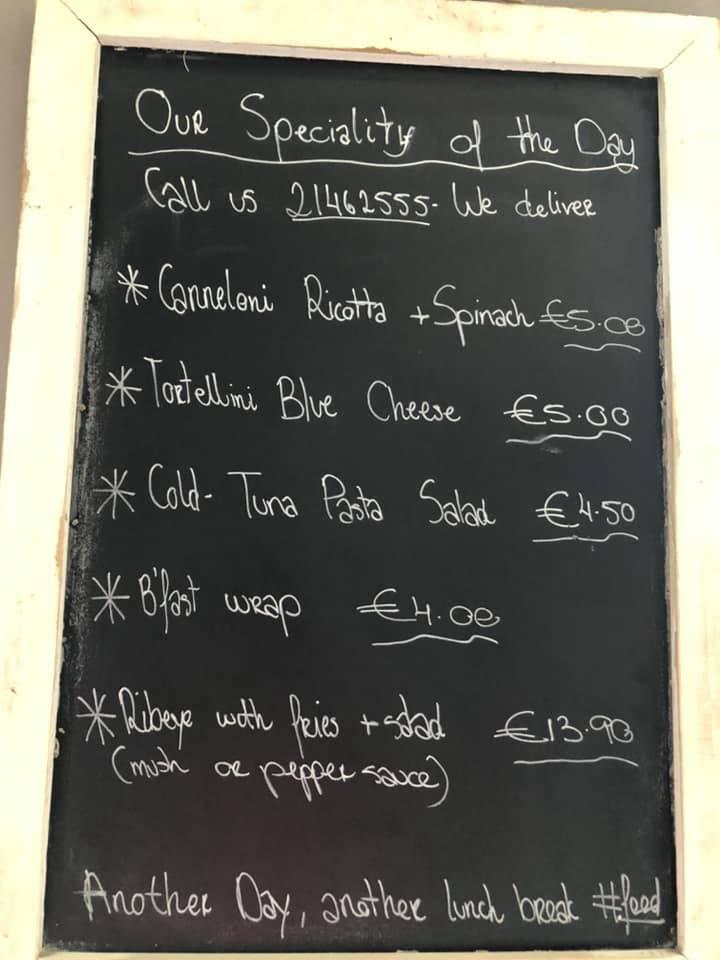 Our Speciality of the Day
Call us 21462555. We deliver
* Canneloni Ricotta + Spinach €5.00
* Tortellini Blue Cheese €5.00
* Cold- Tuna Pasta Salad €4.50
* B'fast wrap €4.00
* Ribeye with fries + salad €13.90
(mush or pepper sauce)
Another Day, another lunch break #feed